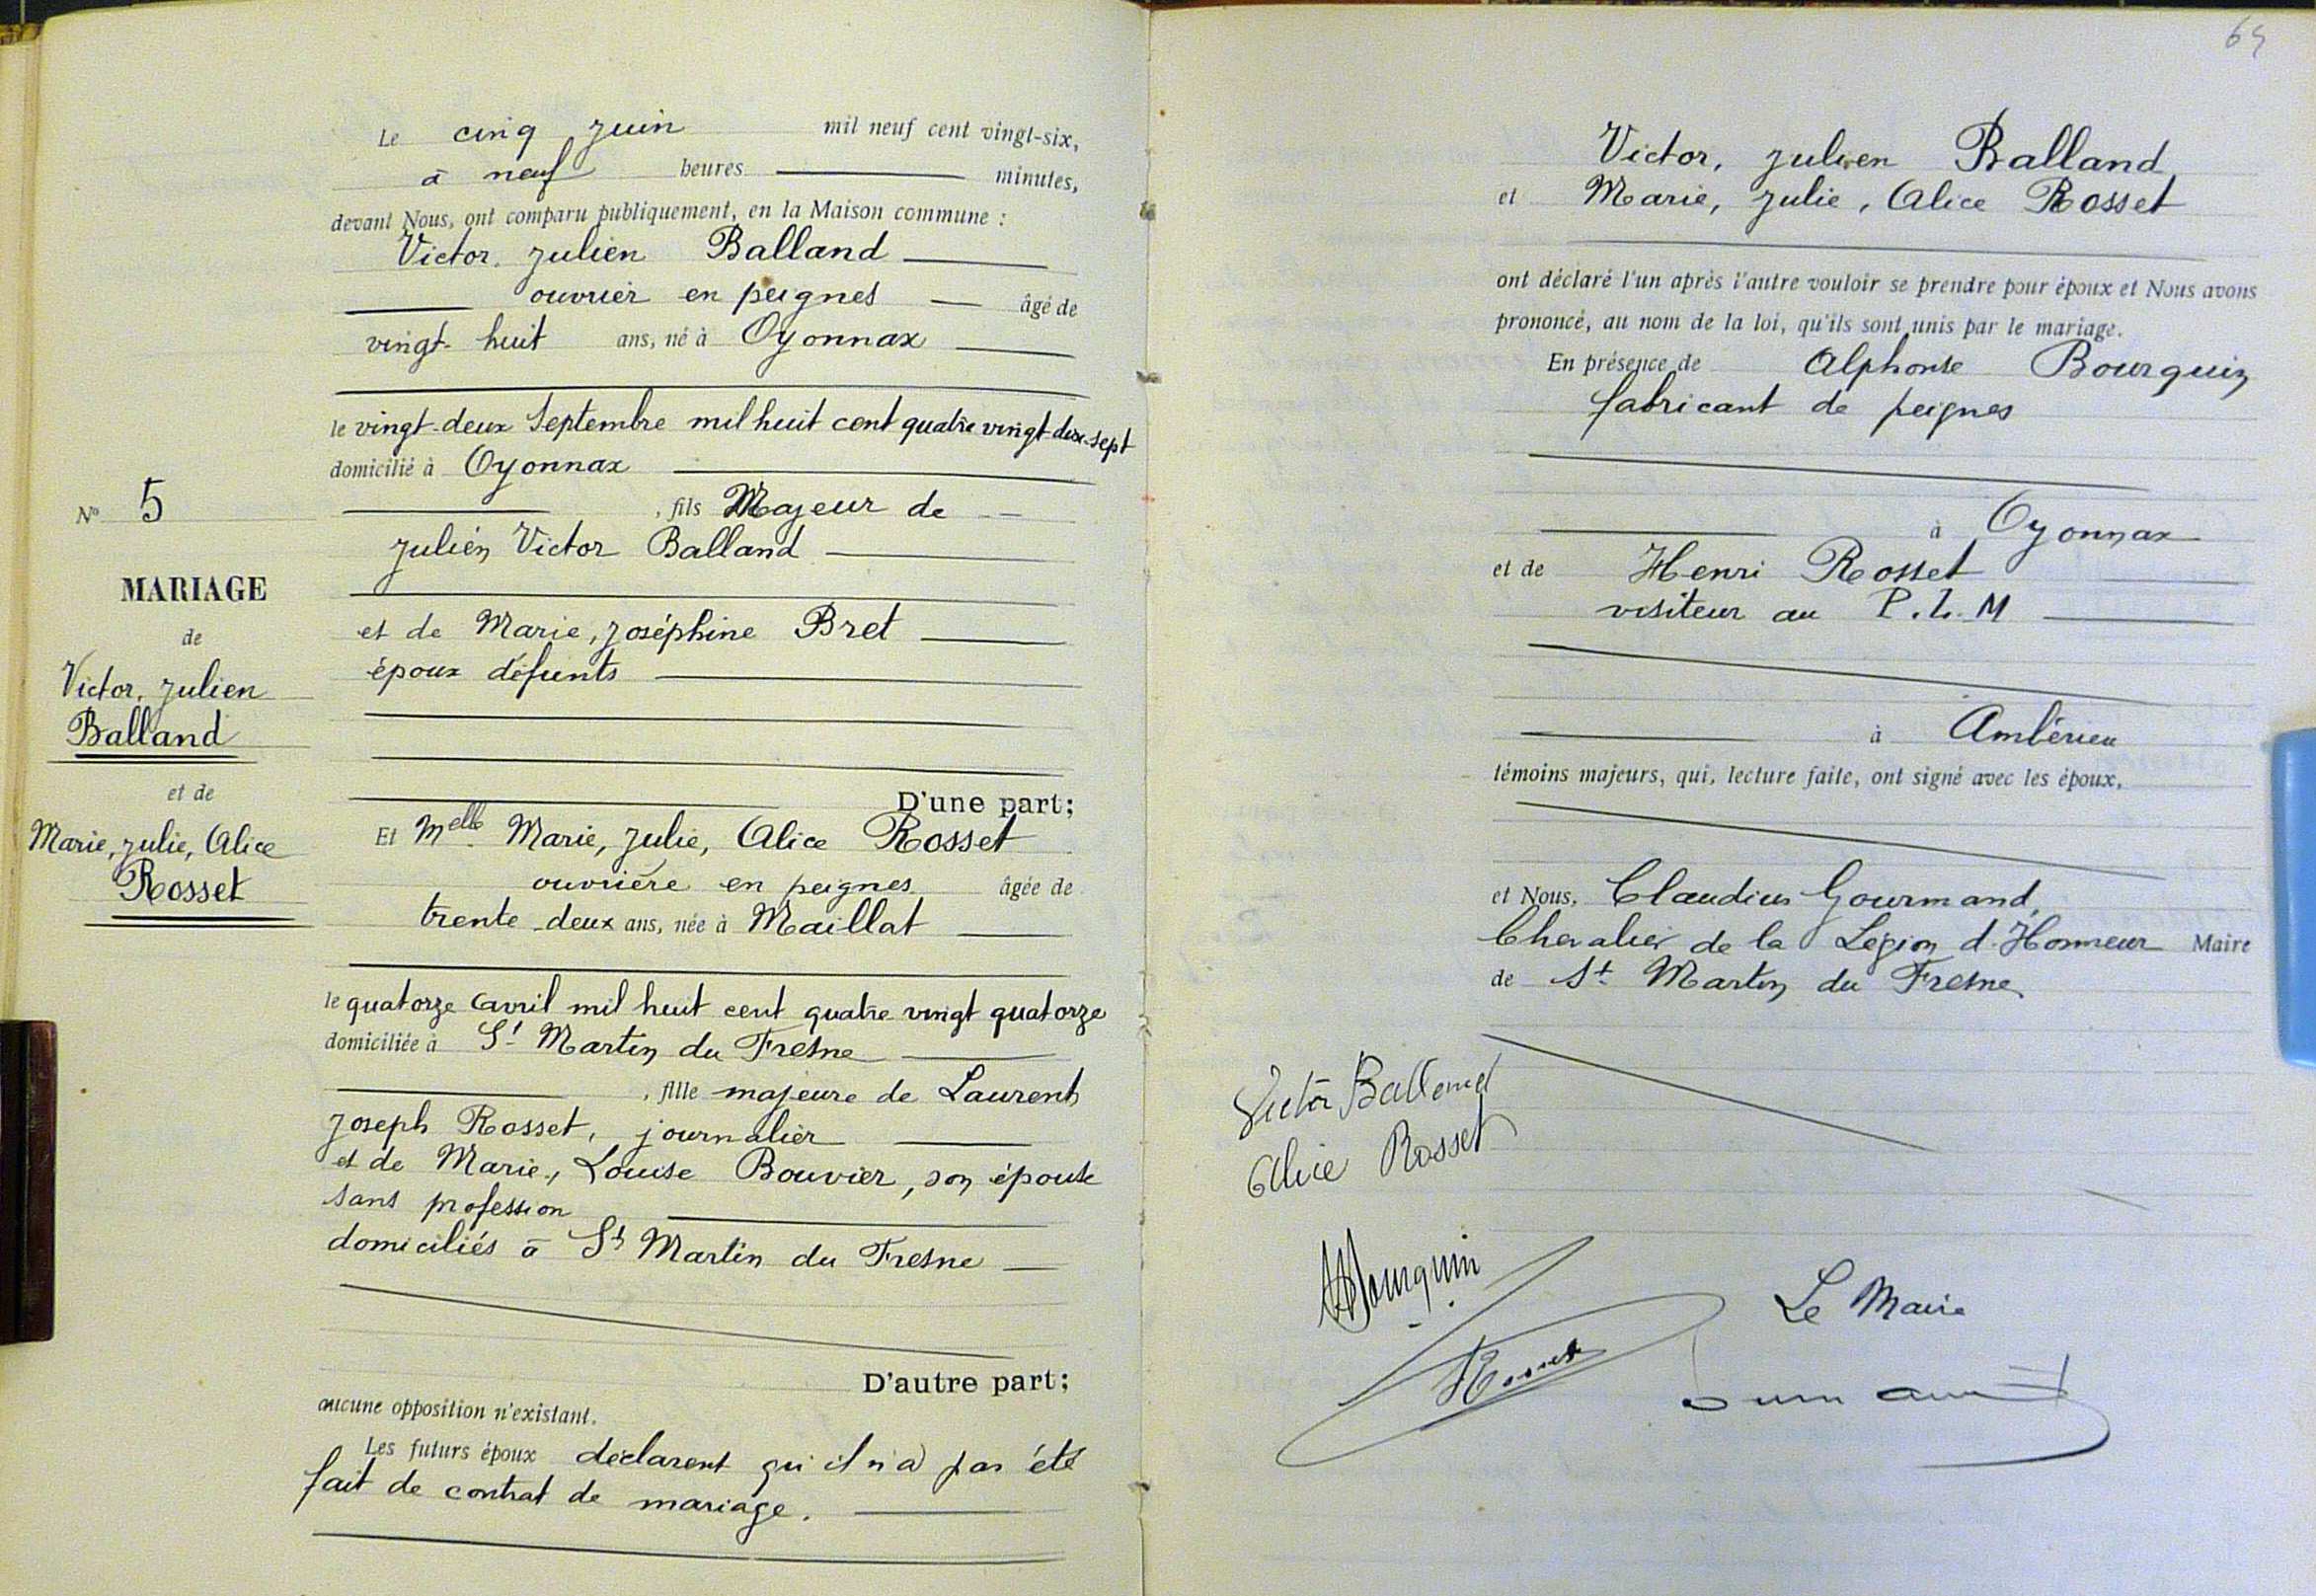 Le cinq juin mil neuf cent vingt-six,
à neuf heures minutes,
devant Nous, ont comparu publiquement, en la Maison commune :
Victor, Julien Balland
ouvrier en peignes âgé de
vingt-huit ans, né à Oyonnax
le vingt-deux Septembre mil huit cent quatre vingt dix-sept
domicilié à Oyonnax
, fils Majeur de
Julien Victor Balland
et de Marie, Joséphine Bret
époux défunts
D'une part;
Et Melle Marie, Julie, Alice Rosset
ouvrière en peignes âgée de
trente-deux ans, née à Maillat
le quatorze avril mil huit cent quatre vingt quatorze
domiciliée à St Martin du Fresne
, fille majeure de Laurent
Joseph Rosset, journalier
et de Marie, Louise Bouvier, son épouse
sans profession
domiciliés à St Martin du Fresne
D'autre part;
aucune opposition n'existant.
Les futurs époux déclarent qu'il n'a pas été
fait de contrat de mariage.
N° 5
MARIAGE
de
Victor, Julien
Balland
et de
Marie, Julie, Alice
Rosset
Victor, Julien Balland
et Marie, Julie, Alice Rosset
ont déclaré l'un après l'autre vouloir se prendre pour époux et Nous avons
prononcé, au nom de la loi, qu'ils sont unis par le mariage.
En présence de Alphonse Bourguin
fabricant de peignes
à Oyonnax
et de Henri Rosset
visiteur au P.L.M
à Ambérieu
témoins majeurs, qui, lecture faite, ont signé avec les époux,
et Nous, Claudius Gourmand,
Chevalier de la Légion d'Honneur Maire
de St Martin du Fresne
Victor Balland
Alice Rosset
ABourguin
Rosset
Le Maire